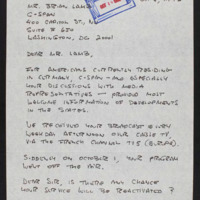 MR. BRIAN LAMB,
C-SPAN
400 CAPITOL ST., NW
SUITE # 650
WASHINGTON, DC 20001
DEAR MR. LAMB,
FOR AMERICANS CURRENTLY RESIDING
IN GERMANY, C-SPAN — AND ESPECIALLY
YOUR DISCUSSIONS WITH MEDIA
REPRESENTATIVES — PROVIDED MOST
WELCOME INFORMATION OF DEVELOPMENTS
IN THE STATES.
WE RECEIVED YOUR BROADCAST EVERY
WEEKDAY AFTERNOON OVER CABLE TV
VIA THE FRENCH CHANNEL
SUDDENLY ON OCTOBER 1, YOUR PROGRAM
WENT OFF THE AIR.
DEAR SIR, IS THERE ANY CHANCE
YOUR SERVICE WILL BE REACTIVATED?